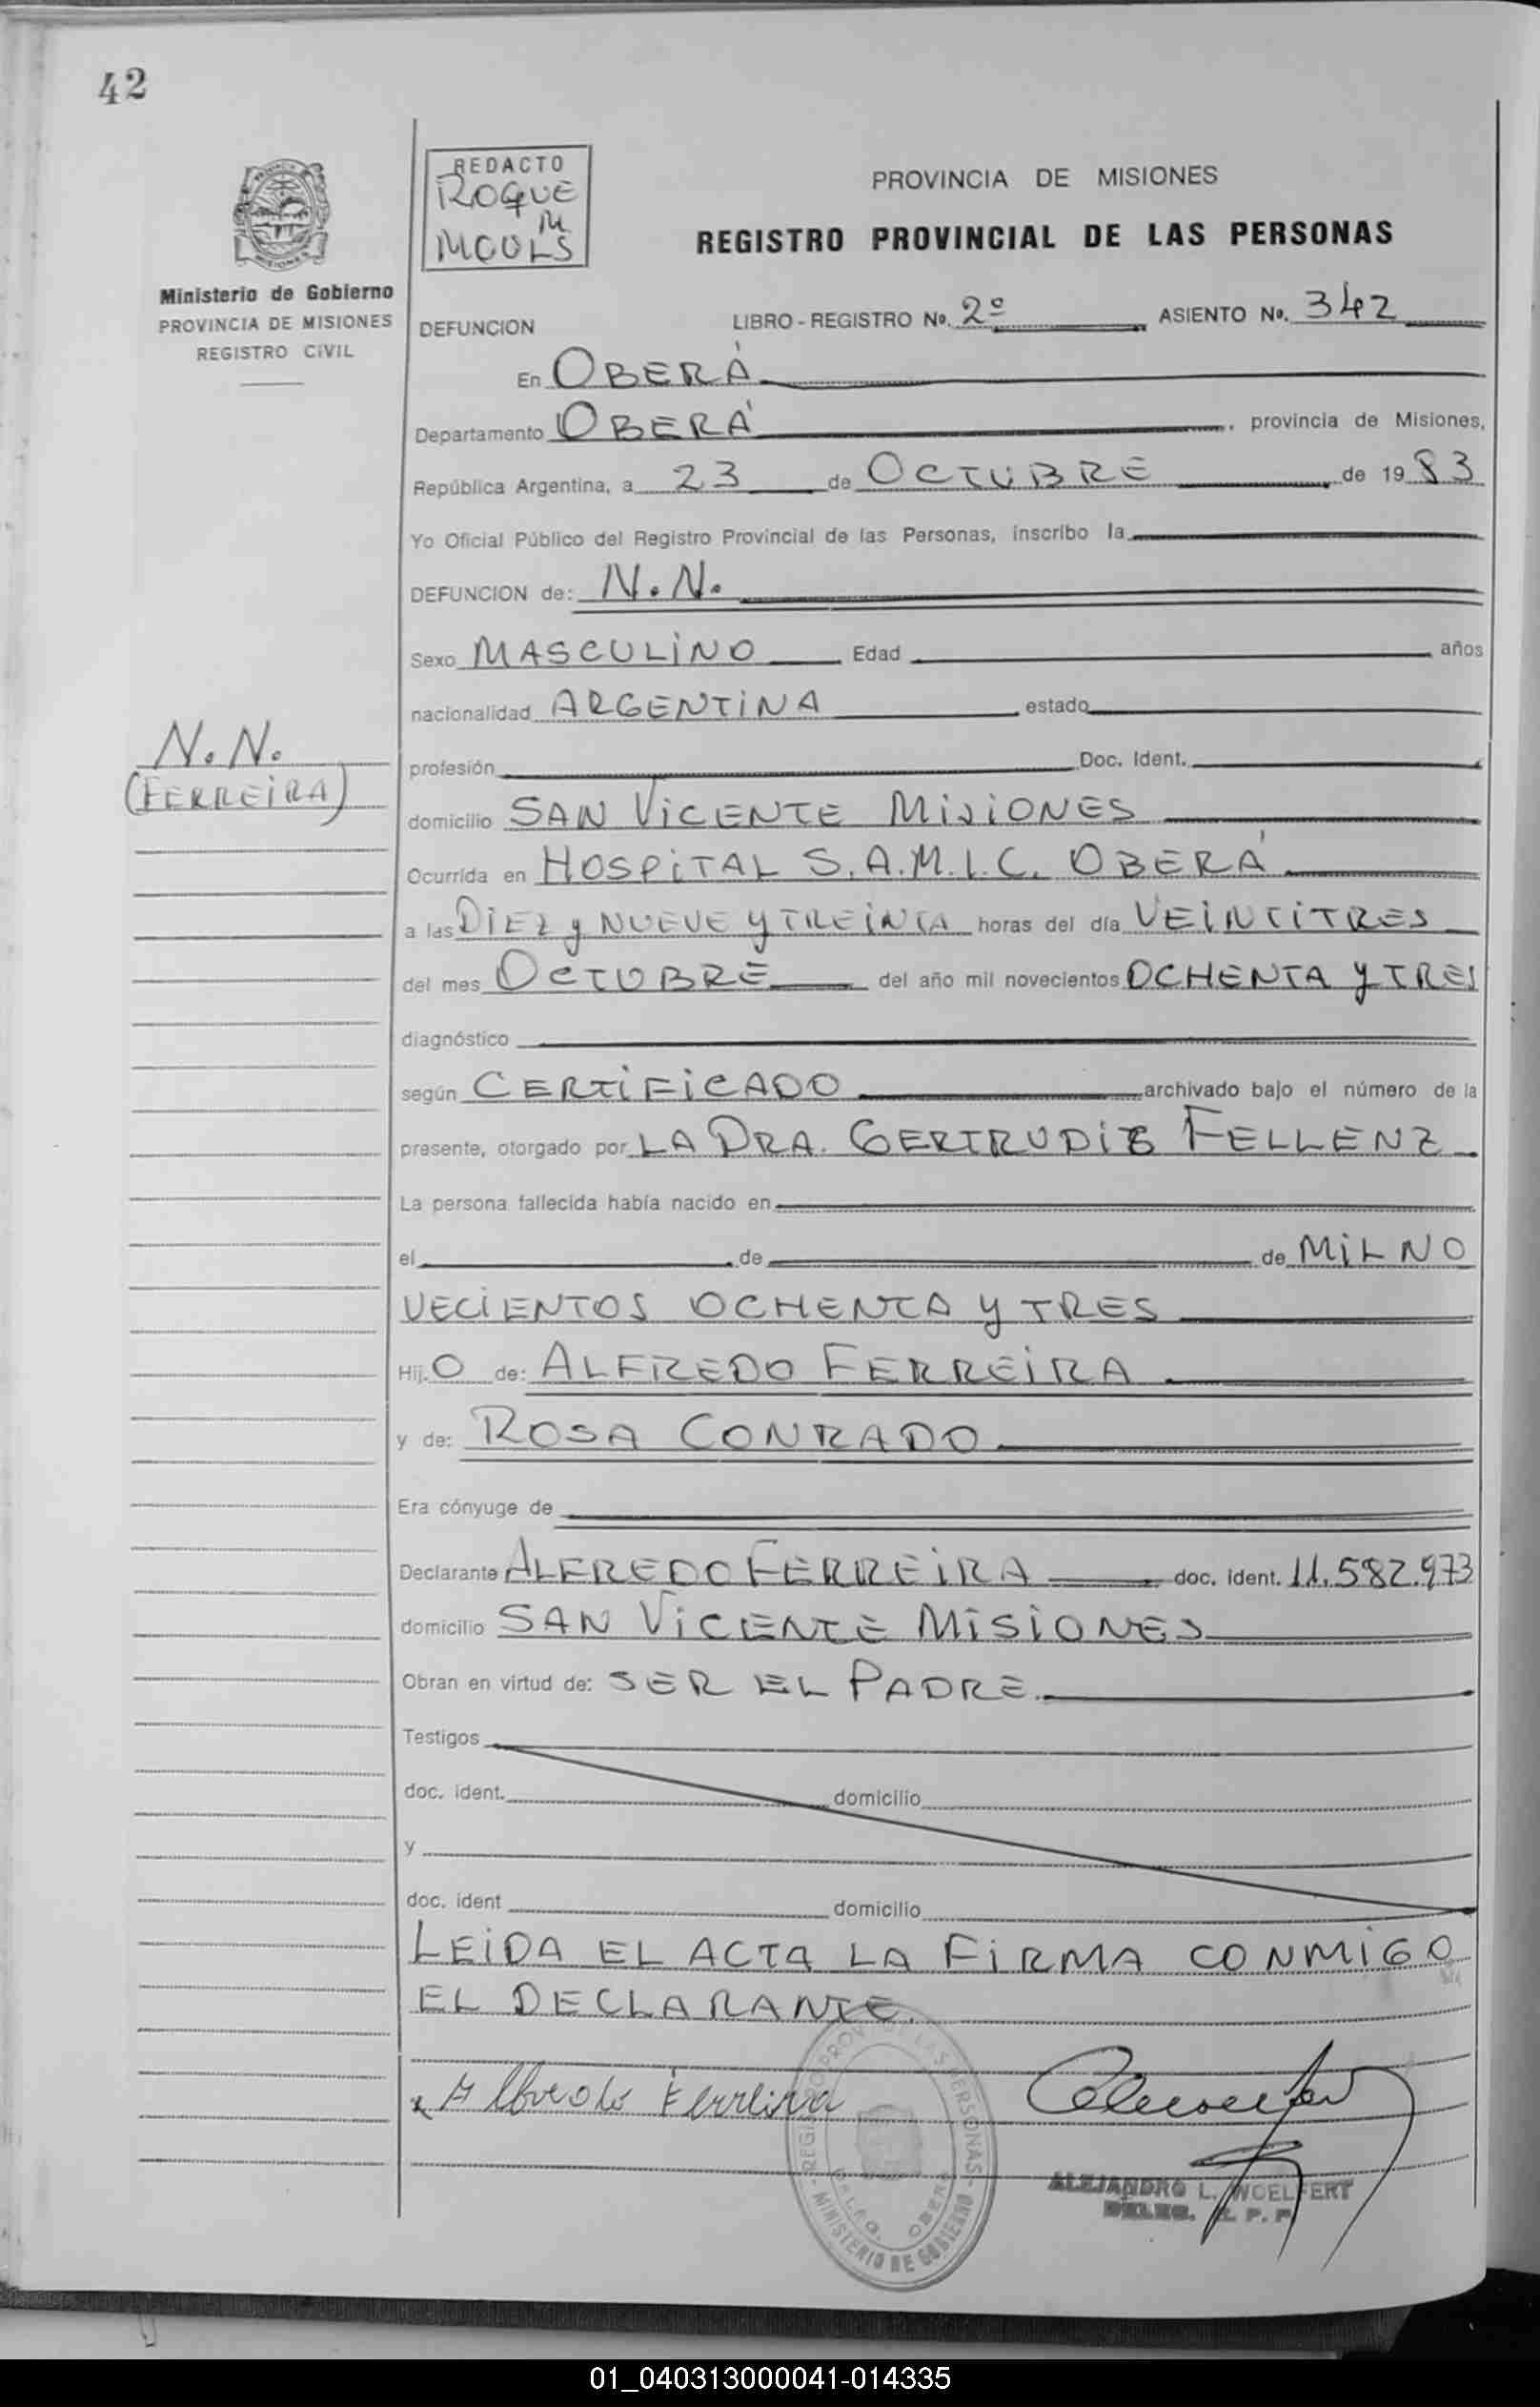 42
REDACTO
ROQUE
M
MOULS
PROVINCIA DE MISIONES
REGISTRO PROVINCIAL DE LAS PERSONAS
Ministerio de Gobierno
PROVINCIA DE MISIONES
REGISTRO CIVIL
DEFUNCION LIBRO - REGISTRO Nº. 2º ASIENTO Nº. 342
En OBERÁ
Departamento OBERÁ, provincia de Misiones,
República Argentina, a 23 de OCTUBRE de 1983
Yo Oficial Público del Registro Provincial de las Personas, inscribo la
DEFUNCION de: N.N.
Sexo MASCULINO Edad años
nacionalidad ARGENTINA estado
N.N.
(FERREIRA)
profesión Doc. Ident.
domicilio SAN VICENTE MISIONES
Ocurrida en HOSPITAL S.A.M.I.C. OBERÁ
a las DIEZ y NUEVE y TREINTA horas del día VEINTITRES
del mes OCTUBRE del año mil novecientos OCHENTA y TRES
diagnóstico
según CERTIFICADO archivado bajo el número de la
presente, otorgado por LA DRA. GERTRUDIS FELLENZ
La persona fallecida había nacido en
el de de MIL NO
VECIENTOS OCHENTA y TRES
Hij O de: ALFREDO FERREIRA
y de: ROSA CONRADO
Era cónyuge de
Declarante ALFREDO FERREIRA doc. ident. 11.582.973
domicilio SAN VICENTE MISIONES
Obran en virtud de: SER EL PADRE.
Testigos
doc. ident. domicilio
y
doc. ident domicilio
LEIDA EL ACTA LA FIRMA CONMIGO
EL DECLARANTE.
x Alfredo Ferreira
REGISTRO PROV. DE LAS PERSONAS - MINISTERIO DE GOBIERNO -
DELEG. OBERA
ALEJANDRO L. WOELFERT
DELEG. R. P. P.
01_040313000041-014335